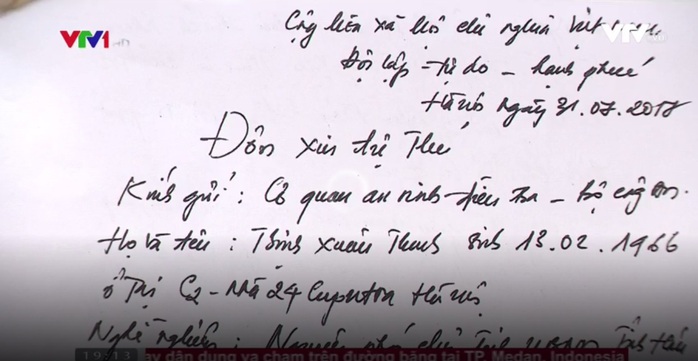 VTV1
Cộng hòa xã hội chủ nghĩa Việt nam
Độc lập - tự do - hạnh phúc
Hà nội ngày 31.07.2017
Đơn xin tự Thú
Kính gửi : Cơ quan an ninh điều tra - Bộ công an.
Họ và tên : Trịnh Xuân Thanh sinh 13.02.1966
ở Tại C2 - nhà 24 Hà nội
Nghề nghiệp : Nguyên phó chủ Tịch UBND Tỉnh Hậu
19:13 ay dân dụng va chạm trên đường băng tại TP. Medan, Indones